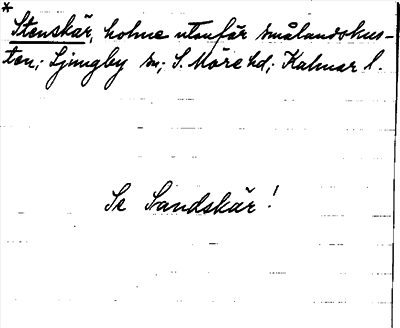 *
Stenskär, holme utanför smålandskus-
ten; Ljungby sn; S. Möre hd; Kalmar l.
Se Sandskär!